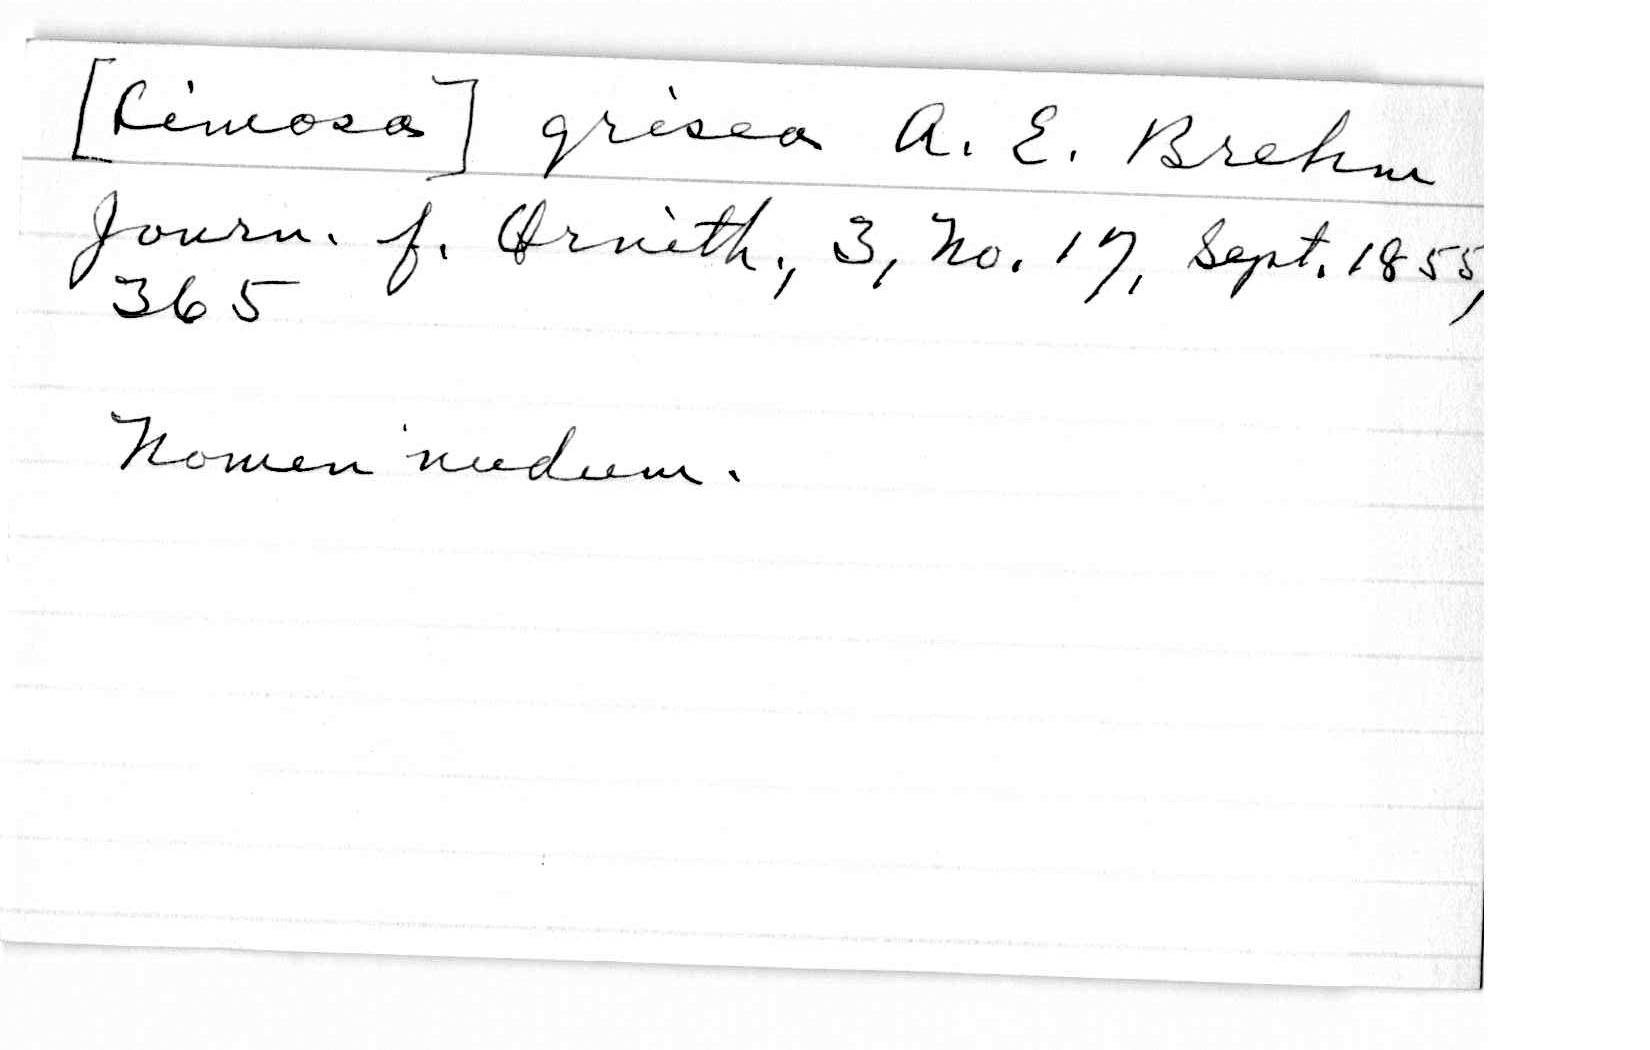 [Limosa] grisea A. E. Brehm
Journ. f. Ornith., 3, No. 17, Sept. 1855,
365
Nomen nudum.